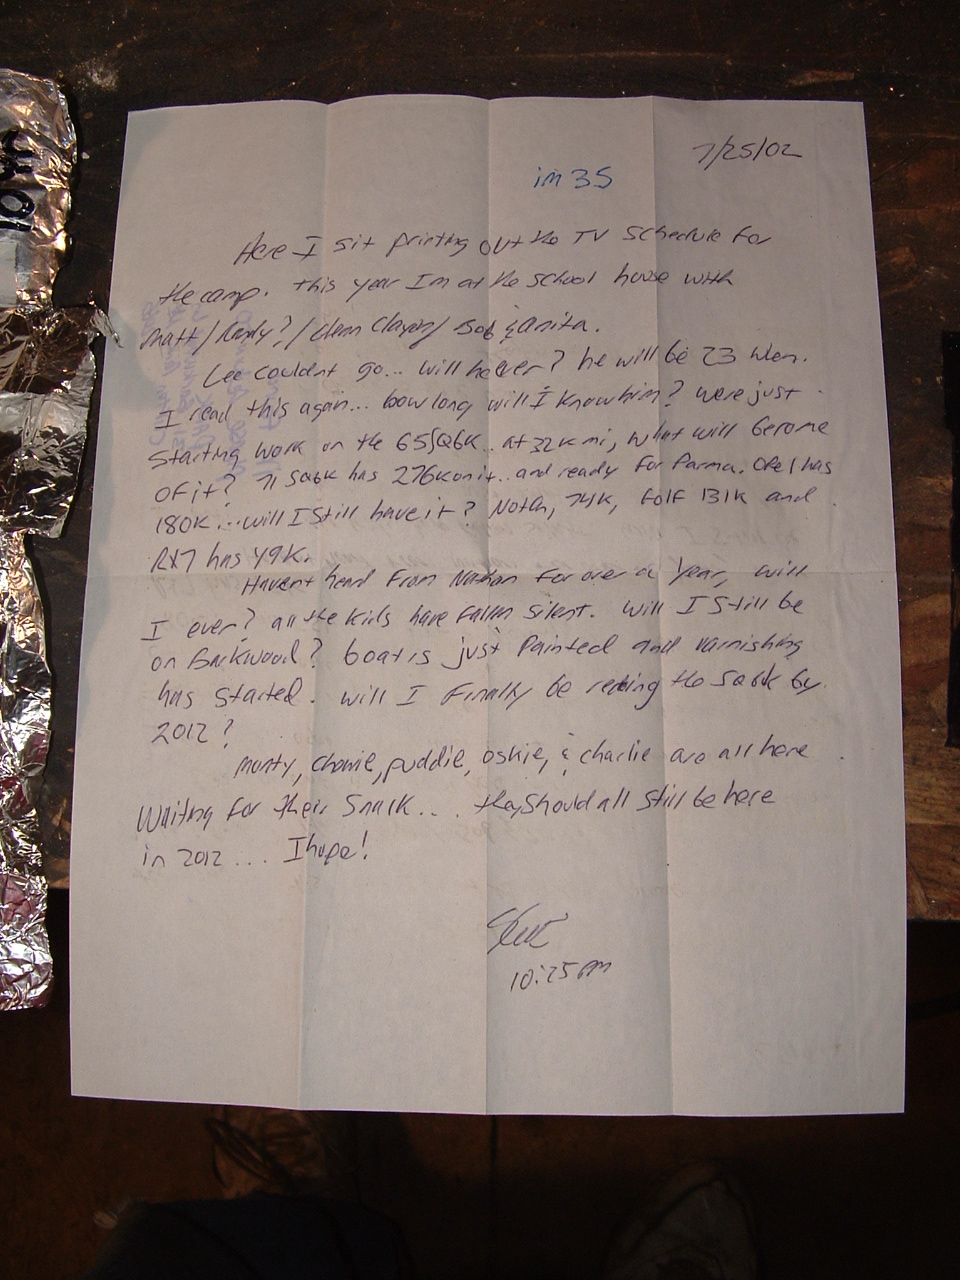 7/25/02
im 35
Here I sit printing out the TV Schedule for
the camp. this year Im at the School house with
Matt / / / Bob & anita.
Lee couldnt go... will he ever? he will be 23 when
I read this again... how long will I know him? were just
Starting work on the 65 SQBK.. at 32K mi, what will become
Of it? 71 SQBK has 276K on it.. and ready for Parma. Opel has
180K... will I Still have it? 74K, 131K and
RX7 has 49K.
Havent heard From Nathan for over a Year, will
I ever? all the kids have fallen silent. will I Still be
on Barkwood? boat is just Painted and varnishing
has Started. will I Finally be the by
2012?
Monty, puddie, oskie, & charlie are all here
Waiting for their Snack... they Should all Still be here
in 2012... I hope!
10:25 PM